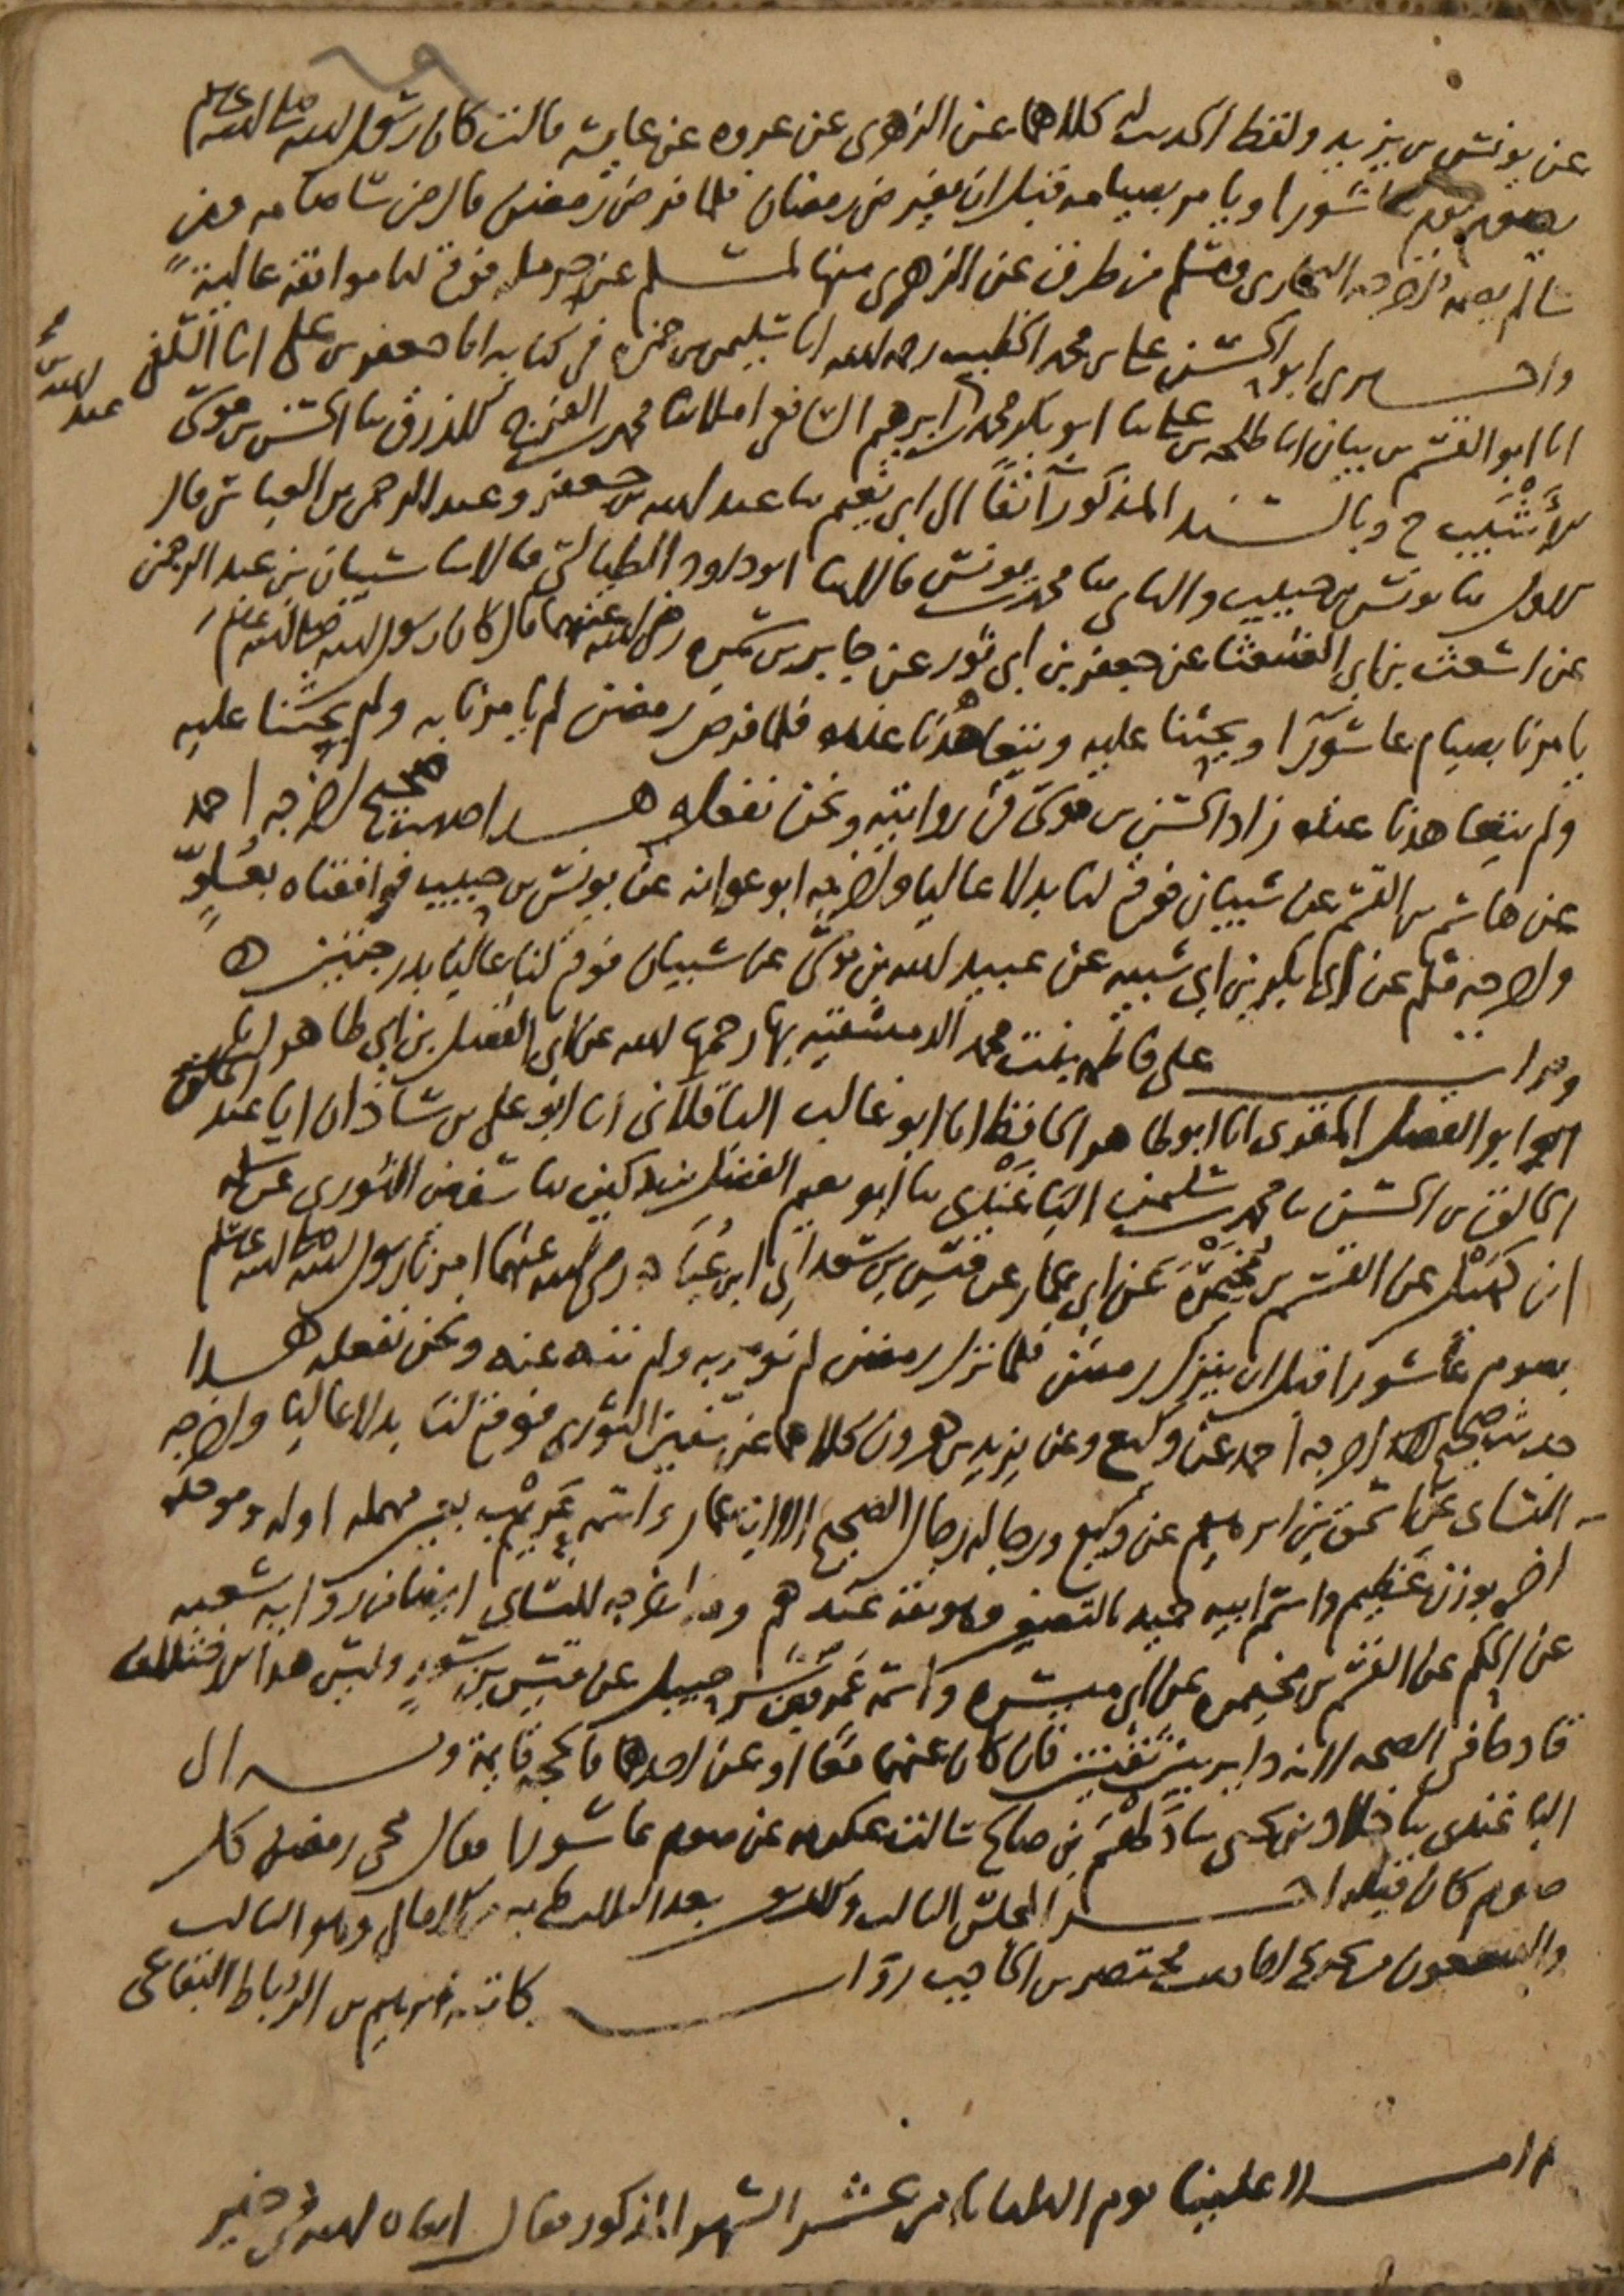 عن يونس بن يزيد ولفظ الحديث له كلاهما عن الزهري عن عروة عن عايشه قالت كان رسول الله صلى الله عليه وسلم
يصوم يوم عاشورا ويامر بصيامه قبل ان يفرض رمضان فلما فرض رمضن قال من شا صامه ومن
شا لم يصمه اخرجه البخاري ومسلم من طرق عن الزهري منها لمسلم عن حرمله فوقع لنا موافقة عالية
واخبرني ابو الحسن علي بن محمد الخطيب رحمه الله انا سليمن بن حمزه في كتابه انا جعفر بن علي انا السلفي
انا ابو القسم بن بيان انا طلحه بن علي نا ابو بكر محمد بن عبد الله بن ابرهيم الشافعي املا نا محمد بن الفرج الازرق نا الحسن بن موسى
الاشيب ح وبالسند المذكور آنفا الى ابي نعيم نا عبد الله بن جعفر وعبد الرحمن بن العباس قال
الاول نا يونس بن حبيب والثاني نا محمد بن يونس قالا نا ابو داود الطيالسي قالا نا شيبان بن عبد الرحمن
عن اشعث بن ابي الشعثا عن جعفر بن ابي ثور عن جابر بن سمره رضي الله عنهما قال كان رسول الله صلى الله عليه وسلم
يامرنا بصيام عاشورا ويحثنا عليه ويتعاهدنا عنده فلما فرض رمضن لم يامرنا به ولم يحثنا عليه
ولم يتعاهدنا عنده زاد الحسن بن موسى في روايته ونحن نفعله هذا حديث صحيح اخرجه احمد
عن هاشم بن القسم عن شيبان فوقع لنا بدلا عاليا واخرجه ابو عوانه عن يونس بن حبيب فوافقناه بعلو
واخرجه مسلم عن ابي بكر بن ابي شيبه عن عبيد الله بن موسى عن شيبان فوقع لنا عاليا بدرجتين ه
وقرات على فاطمه بنت محمد الدمشقيه بها رحمها الله عن ابي الفضل بن ابي طاهر انا
ابو الفضل المقرى انا ابو طاهر الحافظ انا ابو غالب الباقلاني انا ابو علي بن شاذان انا عبد
الخالق بن الحسن نا محمد بن سليمن الباغندي نا ابو نعيم الفضل بن دكين نا سفين الثوري عن سلمه
ابن كهيل عن القسم بن مخيمرة عن ابي عمار عن قيس بن سعد ابن عباده رضي الله عنهما امرنا رسول الله صلى الله عليه وسلم
بصوم عاشورا قبل ان ينزل رمضن فلما نزل رمضن لم نومر به ولم ننه عنه ونحن نفعله هذا
حديث صحيح اخرجه احمد عن وكيع وعن يزيد بن هرون كلاهما عن سفين الثوري فوقع لنا بدلا عاليا واخرجه
النساى عن اسحق بن ابرهيم عن وكيع ورجاله رجال الصحيح الا ابا عمار واسمه عريب بعين مهمله اوله وموحده
اخره بوزن عظيم واسم ابيه حميد بالتصغير وهو ثقة عندهم وقد اخرجه النساي ايضا من رواية شعبه
عن الحكم عن القسم بن مخيمره عن ابي ميسره واسمه عمرو بن شرحبيل عن قيس بن سعد وليس هذا الاختلاف
قادحا في الصحه لانه داير بين ثقتين فان كان عنهما معا او عن احدهما فالحجه قايمة وبه الى
الباغندي نا خلاد بن يحيى نا دلهم بن صالح سالت عكرمه عن صوم عاشورا فقال محى رمضن كل
صوم كان قبله اخر المجلس الثالث والثلاثين بعد الثلاثمايه من الامالي وهو الثالث
والسبعون من تخريج احاديث مختصر ابن الحاجب رواية كاتبه ابرهيم بن الرباط البقاعي
املا علينا يوم الثلثا ثامن عشر الشهر المذكور فقال ابقاه الله في خير